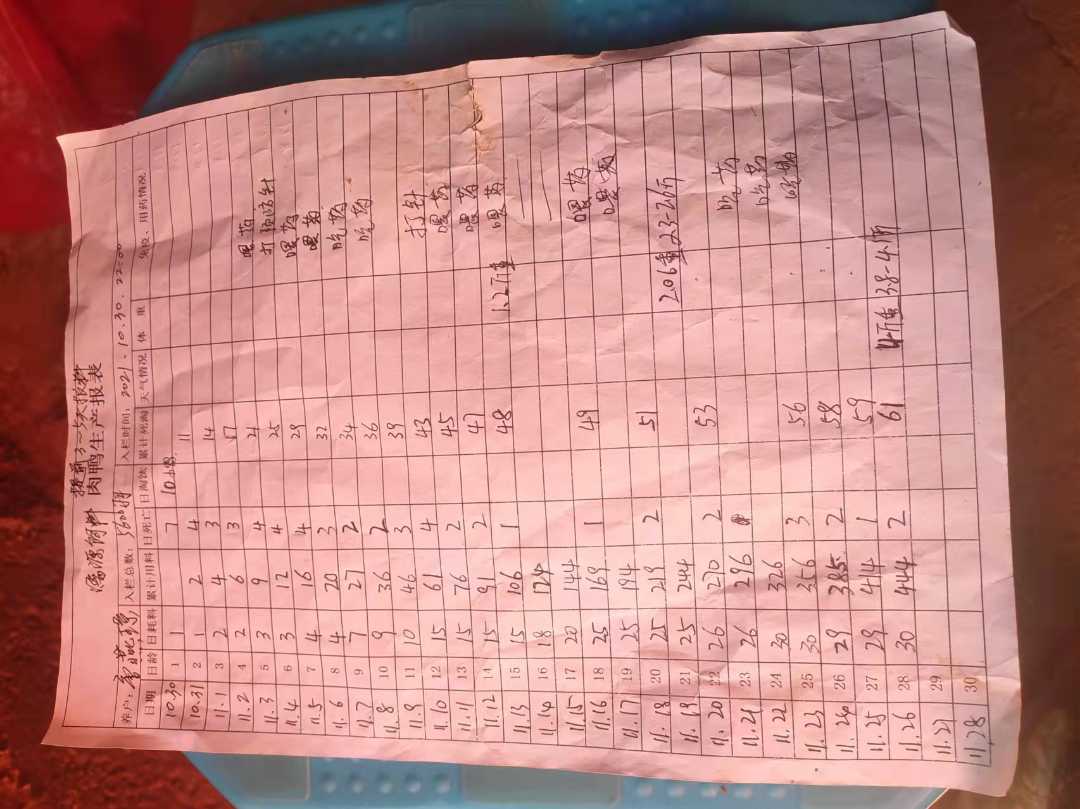 提前3~5天报料
饲料 肉鸭生产报表
养户: 入栏总数: 5600 入栏时间: 2021.10.30. 22:00
日期 日龄 日耗料 累计用料 日死亡 日淘汰 累计死淘 天气情况 体重 免疫、用药情况
10.30 1 1 7
10.31 2 1 2 4 11
11.1 3 2 4 3 14
11.2 4 2 6 3 17 喂药
11.3 5 3 9 4 21 打预防针
11.4 6 3 12 4 25 喂药
11.5 7 4 16 4 29 喂药
11.6 8 4 20 3 32 吃药
11.7 9 7 27 2 34 吃药
11.8 10 9 36 2 36
11.9 11 10 46 3 39
11.10 12 15 61 4 43 打针
11.11 13 15 76 2 45 喂药
11.12 14 15 91 2 47 喂药
11.13 15 15 106 1 48 1.2斤重 喂药
11.14 16 18 124
11.15 17 20 144
11.16 18 25 169 1 49 喂药
11.17 19 25 194 喂药
11.18 20 25 219 2 51
11.19 21 25 244 2.06重 2.3-2.6斤
11.20 22 26 270 2 53
11.21 23 26 296 吃药
11.22 24 30 326 吃药
11.23 25 30 356 3 56
11.24 26 29 385 2 58
11.25 27 29 414 1 59
11.26 28 30 444 2 61 4斤重 3.8-4.斤
11.27 29
11.28 30